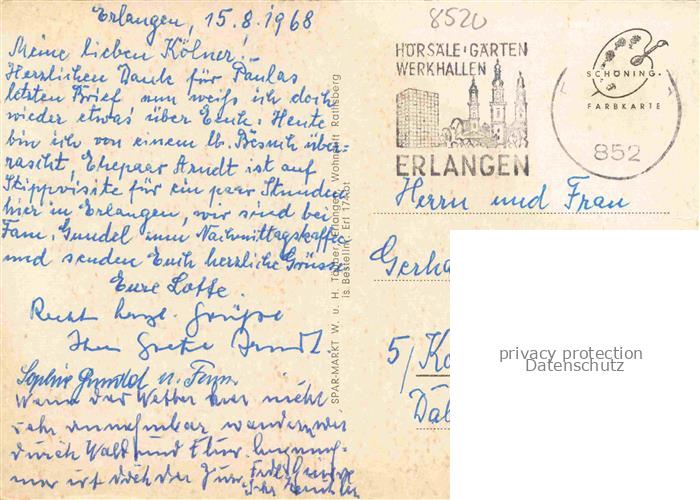 Erlangen, 15.8.1968
Meine lieben Kölner!
Herzlichen Dank für Paulas
letzten Brief nun weiß ich doch
wieder etwas über Euch. Heute
bin ich von einem lb. Besuch über-
rascht, Ehepaar Arndt ist auf
Stippvisite für ein paar Stunden
hier in Erlangen, wir sind bei
Fam. Gundel zum Nachmittagskaffee
und senden Euch herzliche Grüsse
Eure Lotte.
Recht herzl. Grüße
Ihre Grete Arndt
Sophie Gundel u. Fam.
Wenn das Wetter nicht
sehr wandern wir
durch Wald und Flur.
ist doch der
SPAR-MARKT W. u. H. Erlangen, Wohnstift Rathsberg
Bestellnr. Erl
8520
HÖRSÄLE·GÄRTEN
WERKHALLEN
ERLANGEN
SCHÖNING
FARBKARTE
852
Herrn und Frau
Gerha
5/Kö
privacy protection
Datenschutz